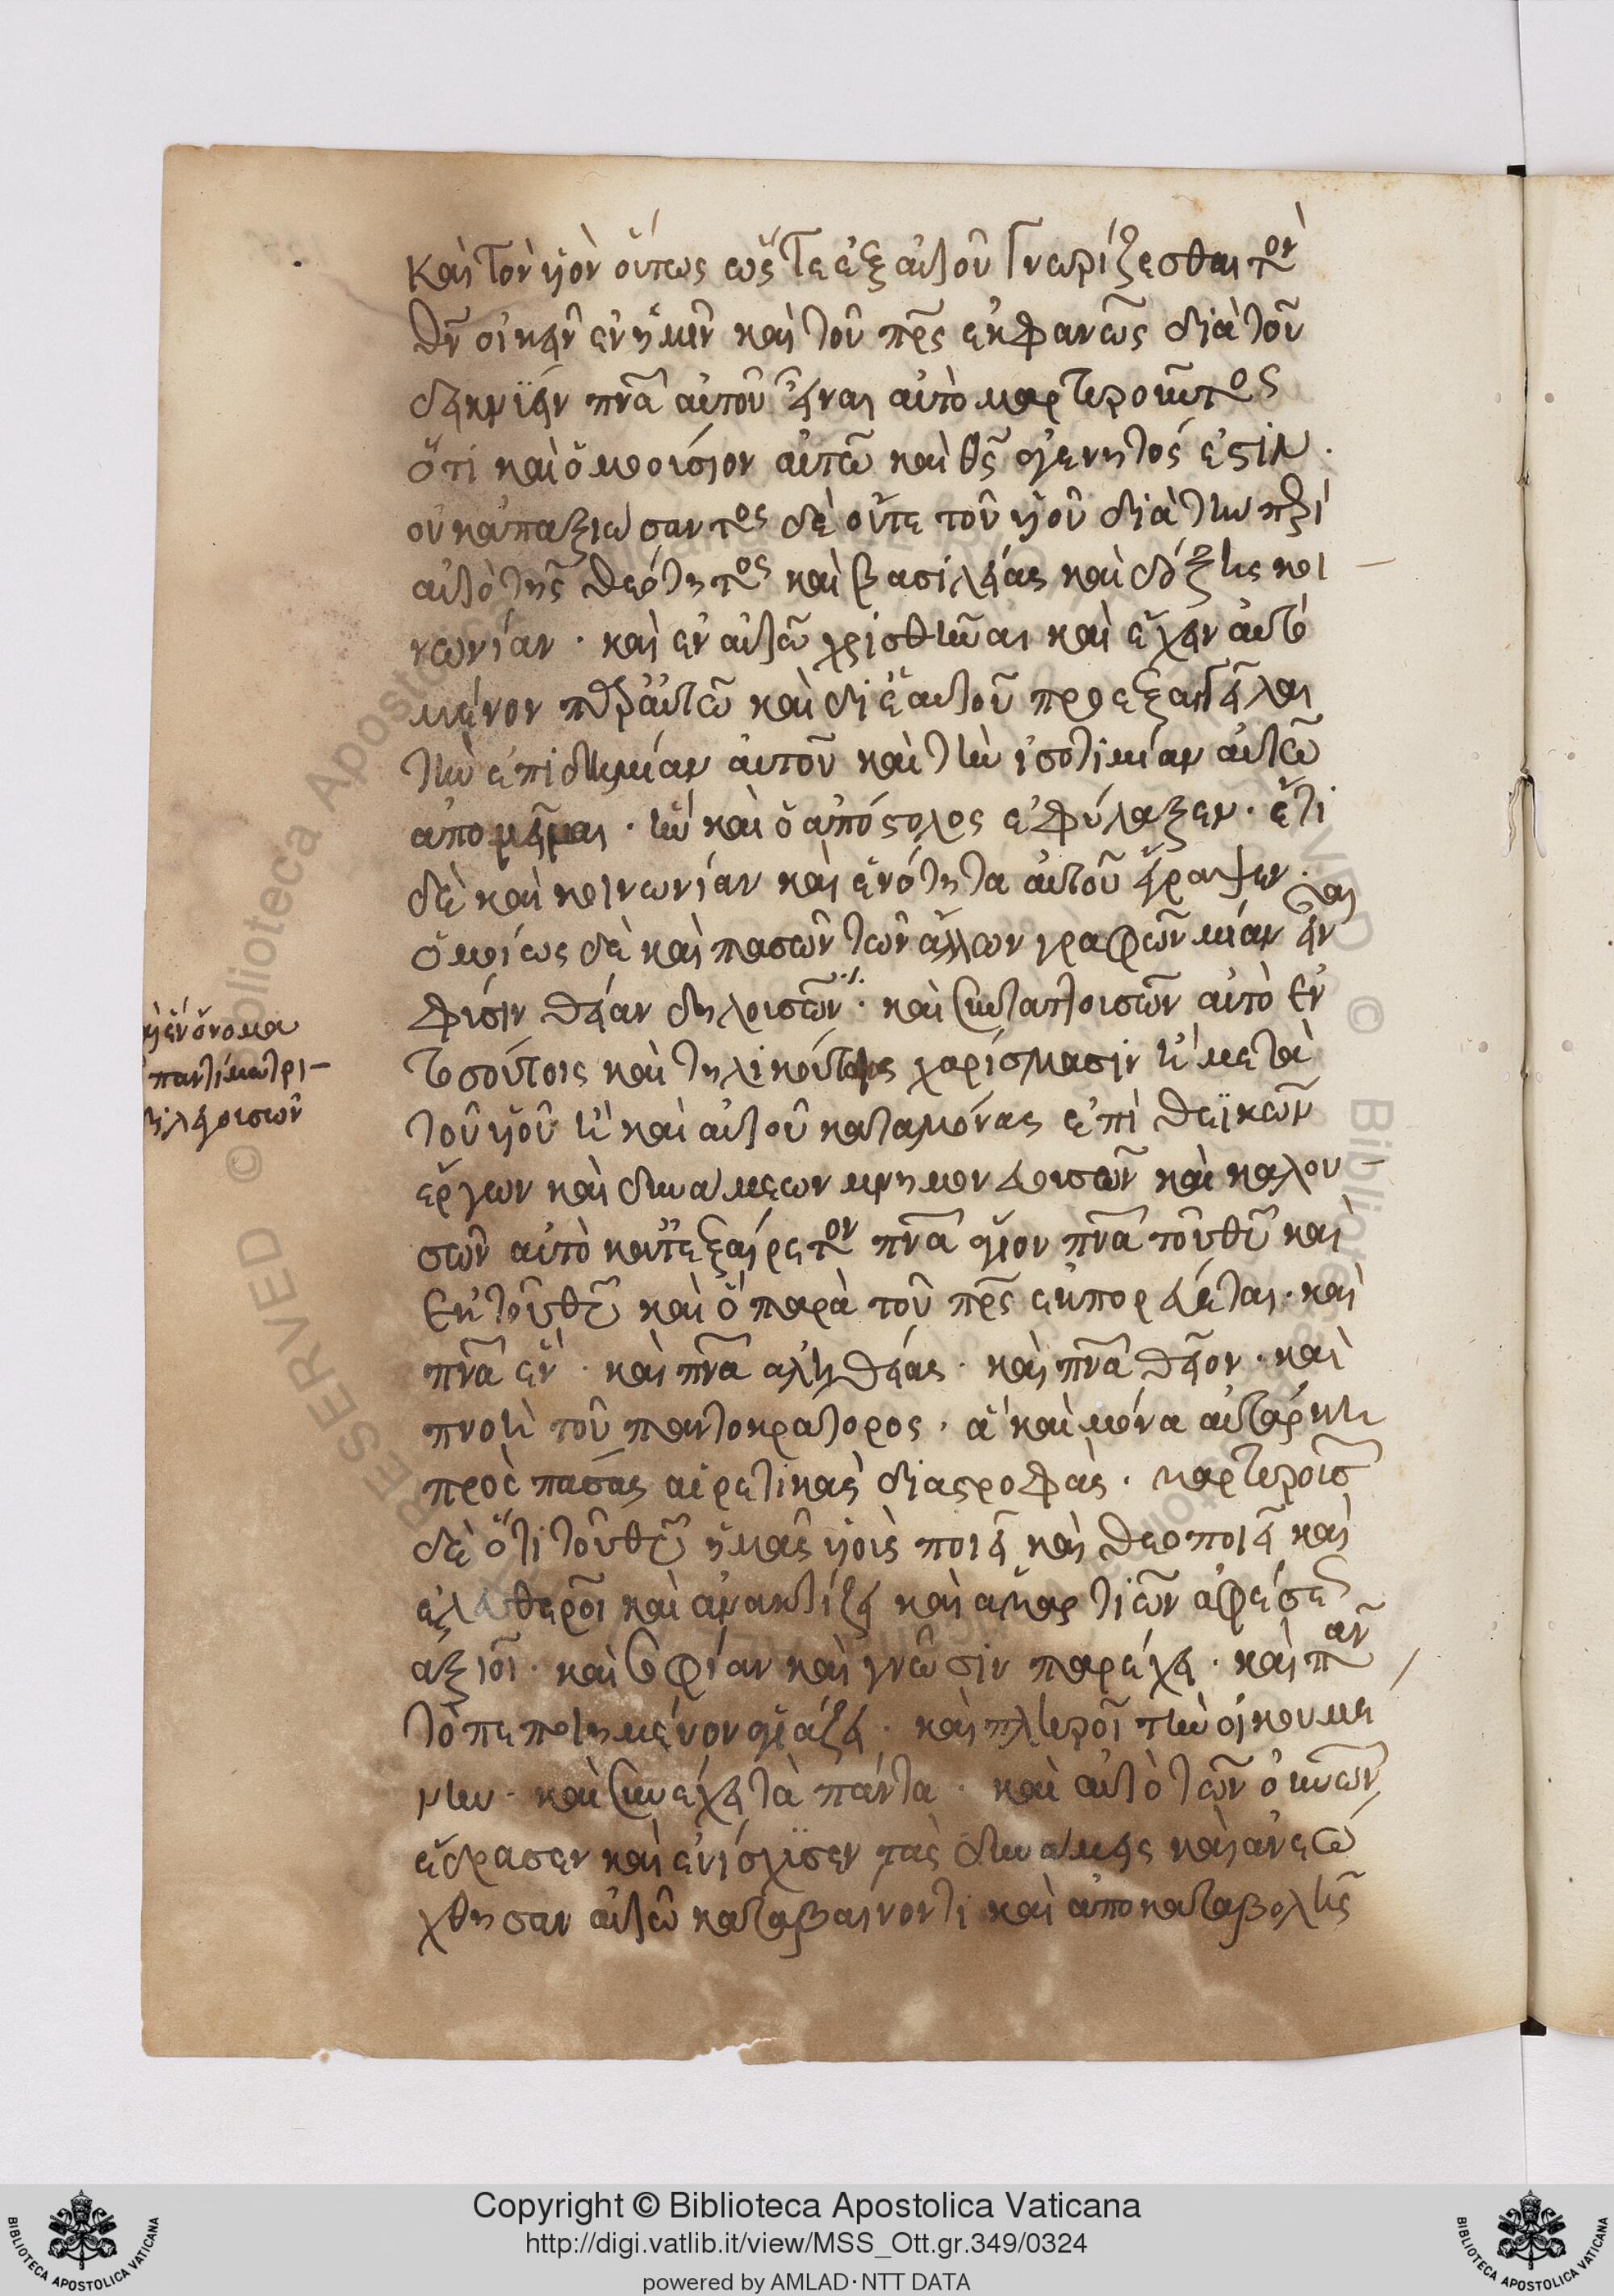 καὶ τὸν ὑὸν οὕτως ὥς τε ἐξ αὐτοῦ γνωρίζεσθαι τὸν
θν οἰκεῖν ἐν ἡμῖν καὶ τοῦ πρς ἐκφανῶς διὰ τοῦ
πνα αὐτοῦ εἶναι αὐτὸ μαρτυροῦντος
ὅτι καὶ ὁμοούσιον αὐτῶ καὶ θς ἀγένητός ἐστιν ·
οὐκ ἀπαξιώσαντος δὲ οὔτε τοῦ ὑοῦ διὰ τὴν
αὐτὸ τῆς θεότητος καὶ βασιλείας καὶ δόξης κοι
νωνίαν · καὶ ἐν αὐτῶ χρισθῆναι καὶ ἔχειν αὐτὸ
μένον αὐτῶ καὶ δι ἑαυτοῦ προεξαγγεῖλαι
τὴν ἐπιδημίαν αὐτοῦ καὶ τὴν ἰσοτιμίαν αὐτῶ
ἀπονεῖμαι · ἣν καὶ ὁ ἀπόστολος ἐφύλαξεν · ἔτι
δὲ καὶ κοινωνίαν καὶ ἑνότητα αὐτοῦ ἔγραψεν ·
ὁμοίως δὲ καὶ πασῶν τῶν ἄλλων γραφῶν μίαν
φύσιν θείαν δηλουσῶν · καὶ συναπτουσῶν αὐτὸ ἐν
τοσούτοις καὶ τηλικούτοις χαρίσμασιν ἢ μετὰ
τοῦ ὑοῦ ἢ καὶ αὐτοῦ καταμόνας ἐπὶ θεϊκῶν
ἔργων καὶ δυνάμεων μνημονευουσῶν καὶ καλου
σῶν αὐτὸ κατεξαίρετον πνα ἅγιον πνα τοῦ θυ καὶ
ἐκ τοῦ θυ καὶ ὃ παρὰ τοῦ πρς ἐκπορεύεται · καὶ
πνα ἕν · καὶ πνα ἀληθείας · καὶ πνα θεῖον · καὶ
πνοὴ τοῦ παντοκράτορος · ἃ καὶ μόνα αὐτάρκη
πρὸς πάσας αἱρετικὰς διαστροφὰς · μαρτυροῦσ
δὲ ὅτι τοῦ θυ ἡμᾶς ὑοὺς ποιεῖ καὶ θεοποιεῖ καὶ
ἐλευθεροῖ καὶ ἀνακτίζει καὶ ἁμαρτιῶν ἀφέσε
ἀξιοῖ · καὶ σοφίαν καὶ γνῶσιν παρέχει · καὶ πᾶν
τὸ πεποιημένον ἁγιάζει · καὶ πληροῖ τὴν οἰκουμέ
νην · καὶ συνέχει τὰ πάντα · καὶ αὐτὸ τῶν οὐνῶν
ἕδρασεν καὶ ἐνίσχυσεν τὰς δυνάμεις καὶ ἀνεώ
χθησαν αὐτῶ καταβαίνοντι καὶ ἀπὸ καταβολῆς
ἓν ὄνομα
παντὶ
Copyright © Biblioteca Apostolica Vaticana
http://digi.vatlib.it/view/MSS_Ott.gr.349/0324
powered by AMLAD·NTT DATA
BIBLIOTECA APOSTOLICA VATICANA
BIBLIOTECA APOSTOLICA VATICANA